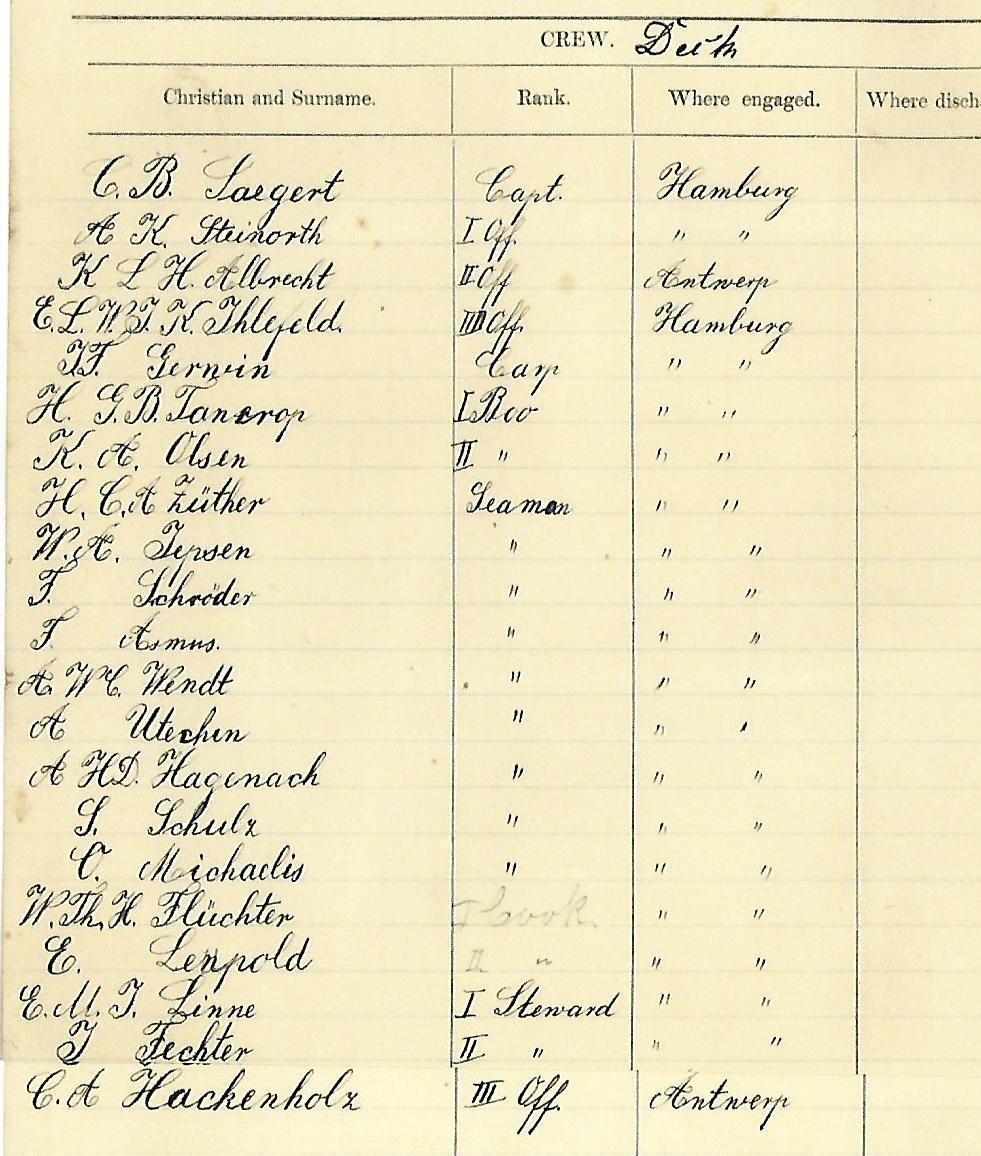 CREW. Deck
Christian and Surname. Rank. Where engaged. Where disch
C. B. Saegert Capt. Hamburg
A K. Steinorth I Off. " "
K L H. Albrecht II Off Antwerp
E. L. W. J. K. Ihlefeld. IIII Off. Hamburg
J.F. Gerwin Carp " "
H. G. B. Tancrop I Boo " "
K. A. Olsen II " " "
H. C. A Züther Seaman " "
W. A. Jepsen " " "
F. Schröder " " "
F. Asmus. " " "
A. W C. Wendt " " "
A Utechin " " "
A H D. Hagenach " " "
S. Schulz " " "
O. Michaelis " " "
W. Th. H. Flüchter I Cook. " "
E. Leupold II " " "
E. M. J. Linne I Steward " "
J Fechter II " " "
C. A Hackenholz III Off. Antwerp